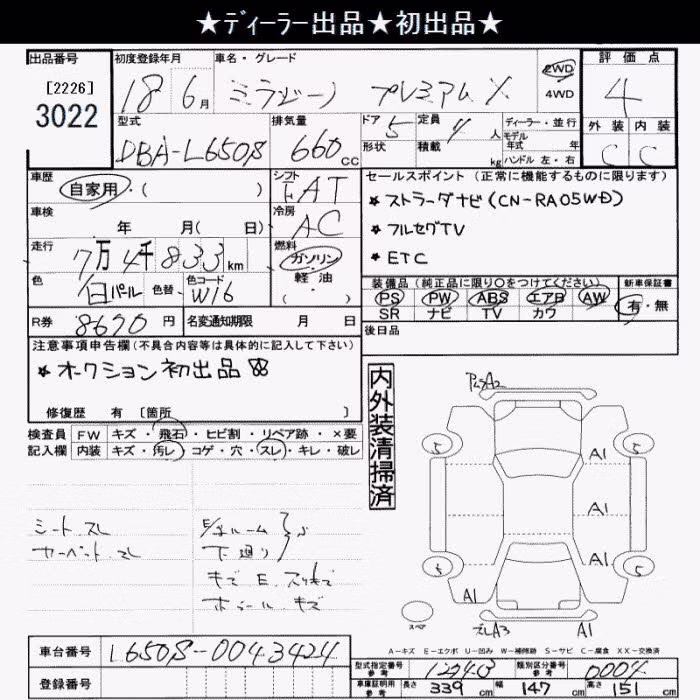 ★ディーラー出品★初出品★
出品番号 初度登録年月 車名・グレード 2WD 4WD 評価点
[2226]
3022
18 6月 ミラジーノ プレミアム X 4
型式 排気量 ドア 5 定員 4人 ディーラー・並行 外装 内装
DBA-L650S 660cc 形状 積載 kg モデル年式 年 ハンドル 左・右 C C
車歴 自家用・( ) シフト FAT セールスポイント (正常に機能するものに限ります)
★ストラーダナビ(CN-RA05WD)
車検 年 月( 日) 冷房 AC
★フルセグTV
走行 7万4千833km 燃料 ガソリン 軽油・( )
★ETC
色 白パール 色替 色コード W16
装備品 (純正品に限り○をつけてください) 新車保証書
PS PW ABS エアB AW 有・無
SR ナビ TV カワ
R券 8690円 名変通知期限 月 日 後日品
注意事項申告欄(不具合内容等は具体的に記入して下さい)
★オークション初出品
修復歴 有 [箇所 ]
内外装清掃済
検査員 FW キズ・飛石・ヒビ割・リペア跡・×要
記入欄 内装 キズ・汚レ・コゲ・穴・スレ・キレ・破レ
シート スレ
カーペット スレ
E/gルーム
下廻り } S
キズ E スリキズ
ホイール キズ
A2
5 A1
A1
A1
5 5
A1
スペア A3
A-キズ E-エクボ U-凹み W-補修跡 S-サビ C-腐食 XX-交換済
車台番号 L650S-0043424
登録番号
型式指定番号 参考 類別区分番号 参考 0004
車庫証明用 参考 長さ 339cm 幅 147cm 高さ 151cm